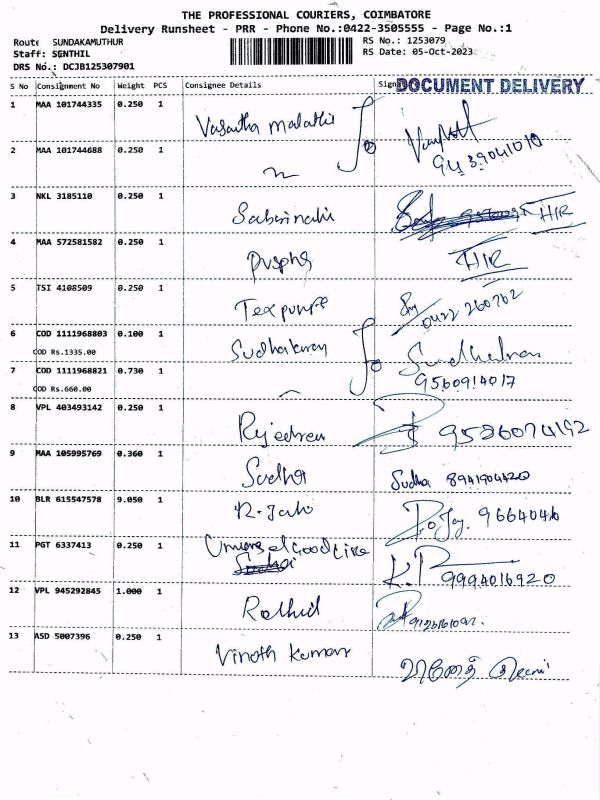 THE PROFESSIONAL COURIERS, COIMBATORE
Delivery Runsheet - PRR - Phone No.:0422-3505555 - Page No.:1
Route SUNDAKAMUTHUR
RS No.: 1253079
Staff: SENTHIL
RS Date: 05-Oct-2023
DRS No.: DCJB125307901
S No Consignment No Weight PCS Consignee Details Sign
DOCUMENT DELIVERY
1 MAA 101744335 0.250 1 Vasantha malathi
2 MAA 101744688 0.250 1
3 NKL 3185110 0.250 1 H/R
4 MAA 572581582 0.250 1 H/R
5 TSI 4108509 0.250 1 0422 260762
6 COD 1111968803 0.100 1 Sudhakaran
COD Rs.1335.00
7 COD 1111968821 0.730 1 9560914017
COD Rs.660.00
8 VPL 403493142 0.250 1 9526074192
9 MAA 105995769 0.360 1 Sudha Sudha 8941904420
10 BLR 615547578 9.050 1 9664046
11 PGT 6337413 0.250 1 K.P 9994016920
12 VPL 945292845 1.000 1
13 ASD 5007396 0.250 1 Vinoth Kumar